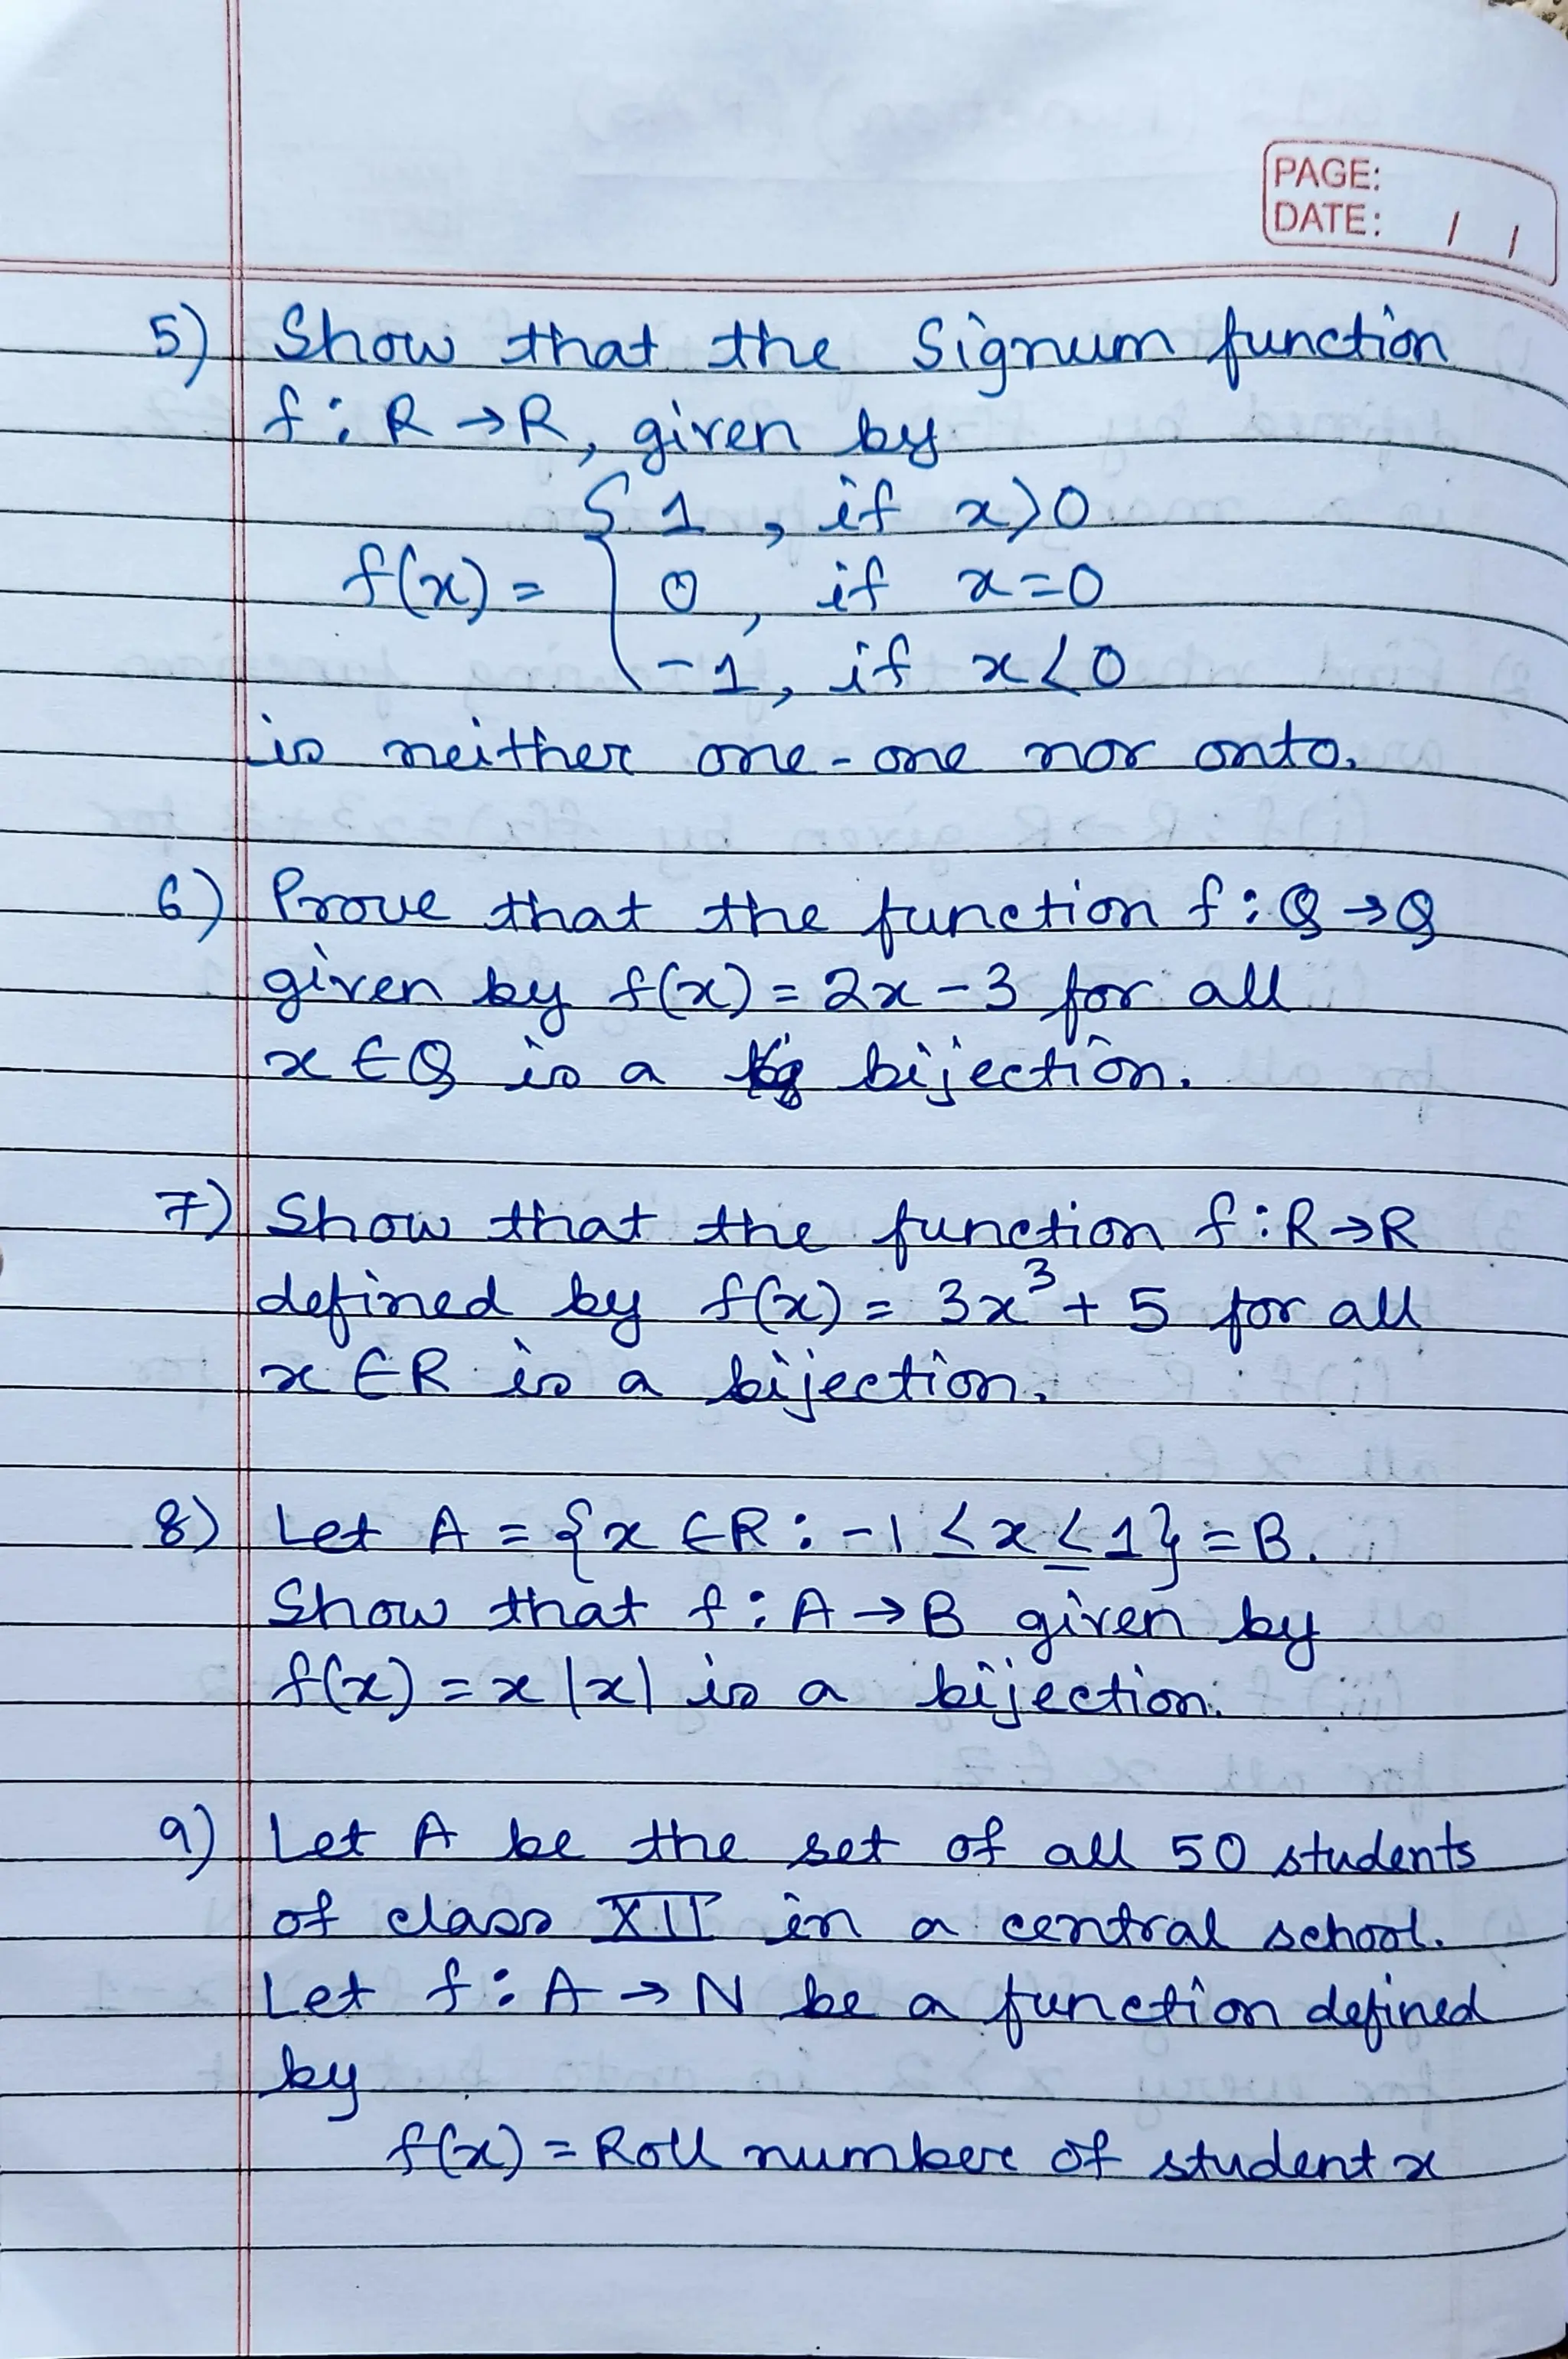 PAGE:
DATE: / /
5) Show that the Signum function
f : R → R, given by
f(x) = { 1 , if x > 0
0 , if x = 0
-1 , if x < 0
is neither one-one nor onto.
6) Prove that the function f : Q → Q
given by f(x) = 2x - 3 for all
x ∈ Q is a bijection.
7) Show that the function f : R → R
defined by f(x) = 3x³ + 5 for all
x ∈ R is a bijection.
8) Let A = {x ∈ R : -1 ≤ x ≤ 1} = B.
Show that f : A → B given by
f(x) = x |x| is a bijection.
9) Let A be the set of all 50 students
of class XII in a central school.
Let f : A → N be a function defined
by
f(x) = Roll number of student x